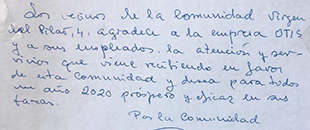 Los vecinos de la Comunidad Virgen
del Pilar, 4, agradece a la empresa OTIS
y a sus empleados, la atención y ser-
vicios que viene recibiendo en favor
de esta Comunidad y desea para todos
un año 2020 próspero y eficaz en sus
tareas.
Por la Comunidad